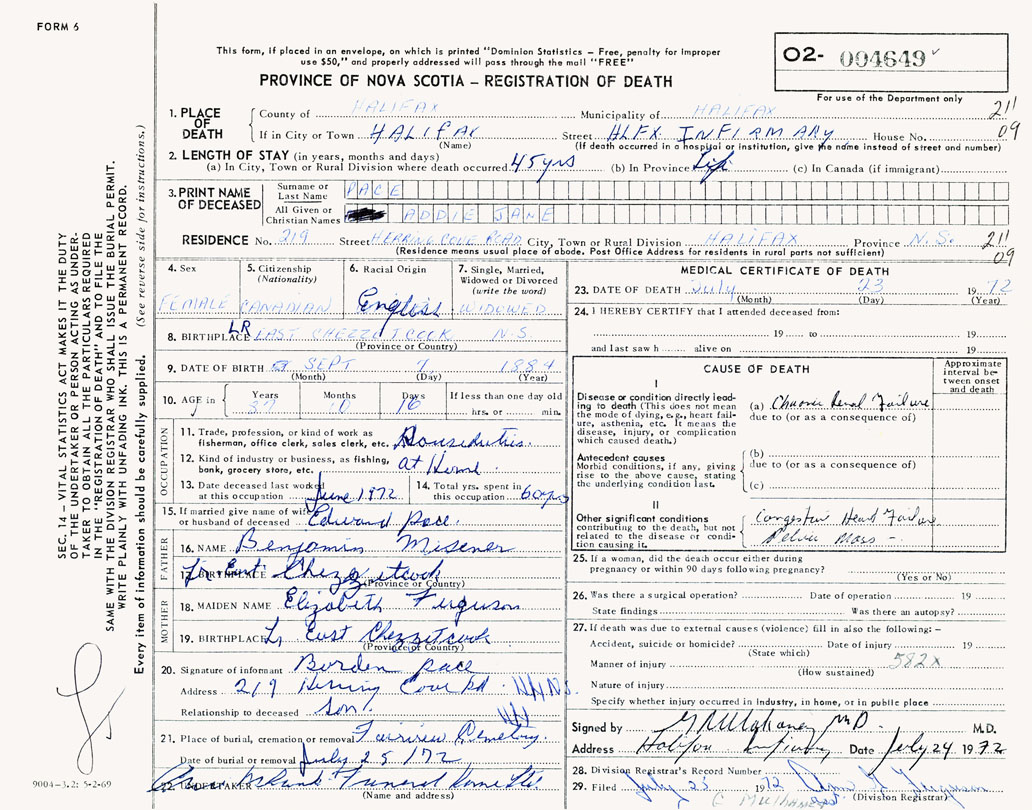 FORM 6
This form, if placed in an envelope, on which is printed "Dominion Statistics – Free, penalty for improper
use $50," and properly addressed will pass through the mail "FREE"
PROVINCE OF NOVA SCOTIA – REGISTRATION OF DEATH
O2- 004649
For use of the Department only
211
09
1. PLACE OF DEATH
County of HALIFAX Municipality of HALIFAX
If in City or Town HALIFAX Street HLFX INFIRMARY House No.
(Name) (If death occurred in a hospital or institution, give the name instead of street and number)
2. LENGTH OF STAY (in years, months and days)
(a) In City, Town or Rural Division where death occurred 45 yrs (b) In Province Life (c) In Canada (if immigrant)
3. PRINT NAME OF DECEASED
Surname or Last Name PACE
All Given or Christian Names ADDIE JANE
RESIDENCE No. 219 Street HERRING COVE ROAD City, Town or Rural Division HALIFAX Province N.S. 211
09
(Residence means usual place of abode. Post Office Address for residents in rural parts not sufficient)
4. Sex
FEMALE
5. Citizenship
(Nationality)
CANADIAN
6. Racial Origin
English
7. Single, Married,
Widowed or Divorced
(write the word)
WIDOWED
8. BIRTHPLACE LR EAST CHEZZETCOOK N-S
(Province or Country)
9. DATE OF BIRTH SEPT 7 1884
(Month) (Day) (Year)
10. AGE in
Years 87
Months 10
Days 16
If less than one day old
hrs. or min.
OCCUPATION
11. Trade, profession, or kind of work as
fisherman, office clerk, sales clerk, etc. Houseduties.
12. Kind of industry or business, as fishing,
bank, grocery store, etc. at Home.
13. Date deceased last worked
at this occupation June 1972
14. Total yrs. spent in
this occupation 60 yrs
15. If married give name of wife
or husband of deceased Edward Pace.
FATHER
16. NAME Benjamin Misener
17. BIRTHPLACE Lr East Chezzetcook
(Province or Country)
MOTHER
18. MAIDEN NAME Elizabeth Ferguson
19. BIRTHPLACE Lr East Chezzetcook
(Province or Country)
20. Signature of informant Borden Pace
Address 219 Herring Cove Rd N.S.
Relationship to deceased Son.
21. Place of burial, cremation or removal Fairview Cemetery.
Date of burial or removal July 25/72
22. UNDERTAKER Funeral Home Ltd.
(Name and address)
MEDICAL CERTIFICATE OF DEATH
23. DATE OF DEATH July 23 1972
(Month) (Day) (Year)
24. I HEREBY CERTIFY that I attended deceased from:
19 to 19
and last saw h alive on 19
CAUSE OF DEATH
Approximate
interval be-
tween onset
and death
I
Disease or condition directly lead-
ing to death (This does not mean
the mode of dying, e.g., heart fail-
ure, asthenia, etc. It means the
disease, injury, or complication
which caused death.)
(a) Chronic Renal Failure
due to (or as a consequence of)
Antecedent causes
Morbid conditions, if any, giving
rise to the above cause, stating
the underlying condition last.
(b)
due to (or as a consequence of)
(c)
II
Other significant conditions
contributing to the death, but not
related to the disease or condi-
tion causing it.
Congestive Heart Failure
Pelvic Mass -
25. If a woman, did the death occur either during
pregnancy or within 90 days following pregnancy?
(Yes or No)
26. Was there a surgical operation? Date of operation 19
State findings Was there an autopsy?
27. If death was due to external causes (violence) fill in also the following: –
Accident, suicide or homicide? Date of injury 19
(State which)
582x
Manner of injury
(How sustained)
Nature of injury
Specify whether injury occurred in industry, in home, or in public place
Signed by M.D. M.D.
Address Halifax Infirmary Date July 24 1972
28. Division Registrar's Record Number
29. Filed July 25 1972
(Division Registrar)
SEC. 14 – VITAL STATISTICS ACT MAKES IT THE DUTY
OF THE UNDERTAKER OR PERSON ACTING AS UNDER-
TAKER TO OBTAIN ALL THE PARTICULARS REQUIRED
IN THE "REGISTRATION OF DEATH" AND TO FILE THE
SAME WITH THE DIVISION REGISTRAR WHO SHALL ISSUE THE BURIAL PERMIT.
WRITE PLAINLY WITH UNFADING INK. THIS IS A PERMANENT RECORD.
Every item of information should be carefully supplied. (See reverse side for instructions.)
9004-3.2: 5-2-69